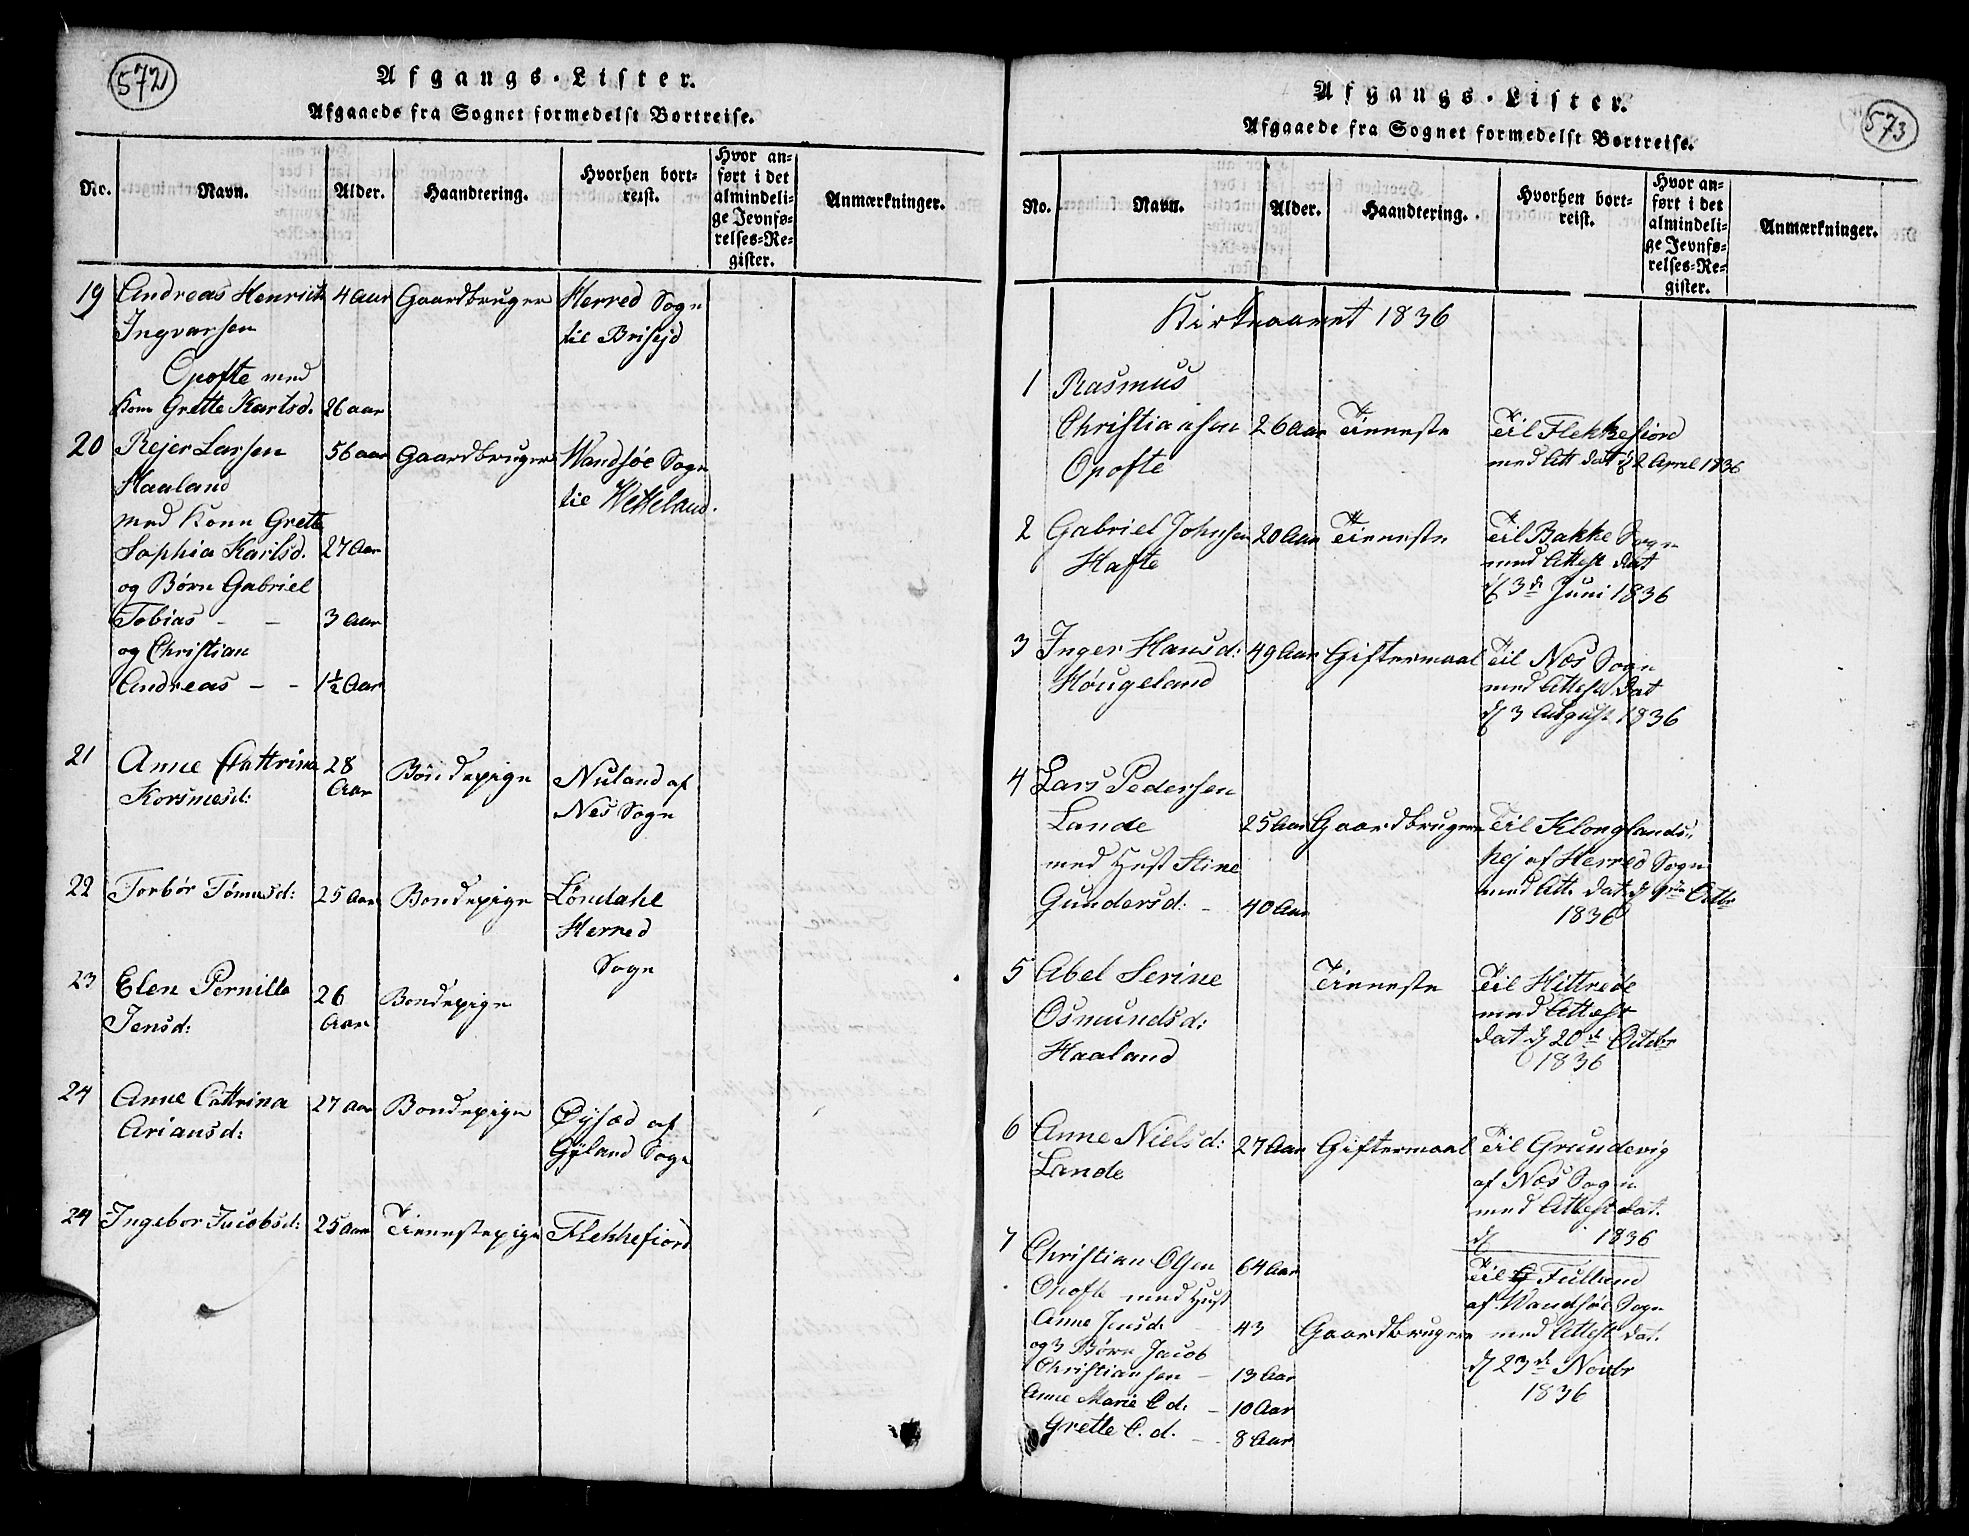 572
Afgangs-Lister.
Afgaaede fra Sognet formedelst Bortreise.
No. Navn. Alder. Haandtering. Hvorhen bortreist. Hvor anført i det almindelige Jevnførelses-Register. Anmærkninger.
19 Andreas Henrich 4 Aar Gaardbruger Herred Sogn
Ingvarsen til Briseid
Opofte med
Kone Grette Karlsd. 26 aar
20 Rejer Larsen 56 aar Gaardbruger Wandsøe Sogn
Haaland til Wetteland.
med Kone Grete
Sophia Karlsd. 27 Aar
og Børn Gabriel
Tobias - - 3 Aar
og Christian
Andreas - - 1½ Aar
21 Anne Cattrina 28 Bondepige Nuland af
Korsmesd: Aar Nes Sogn
22 Torbør Tømmsd: 25 Aar Bondepige Løndahl
Herred
Sogn
23 Elen Pernille 26 Bondepige
Jensd: Aar
24 Anne Cattrina 27 Aar Bondepige Øysæd af
Ariansd: Gyland Sogn
24 Ingebor Jacobsd: 25 Aar Tienestepige Flekkefiord
573
Afgangs-Lister.
Afgaaede fra Sognet formedelst Bortreise.
No. Navn. Alder. Haandtering. Hvorhen bortreist. Hvor anført i det almindelige Jevnførelses-Register. Anmærkninger.
Kirkeaaret 1836
1 Rasmus
Christiansen 26 Aar Tieneste Til Flekkefiord
Opofte med Att dat d 2 April 1836
2 Gabriel Johnsen 20 Aar Tieneste Til Bakke Sogn
Hafte med Attest dat
d 3de Juni 1836
3 Inger Hansd: 49 Aar Giftermaal Til Næs Sogn
Høugeland med Attest dat
d 3 August 1836
4 Lars Pedersen
Lande 25 Aar Gaardbruger Til Klonglands-
med Hust Stine hej af Herred Sogn
Gundersd: - 40 Aar med Att. dat d Octbr
1836
5 Abel Serine Tieneste Til Hittrede
Osmundsd: med Attest
Haaland dat d 20de Octbr
1836
6 Anne Nielsd: 27 Aar Giftermaal Til Grundevig
Lande af Næs Sogn
med Attest dat.
d 1836
7 Christian Olsen 64 Aar Til Fulland
Opofte med Hust af Wandsøe Sogn
Anne Jensd. - 43 Gaardbruger med Attest dat.
og 3 Børn Jacob d 23de Novbr
Christiansen - 13 Aar 1836
Anne Marie C d: - 10 Aar
Grette C. d. - 8 Aar